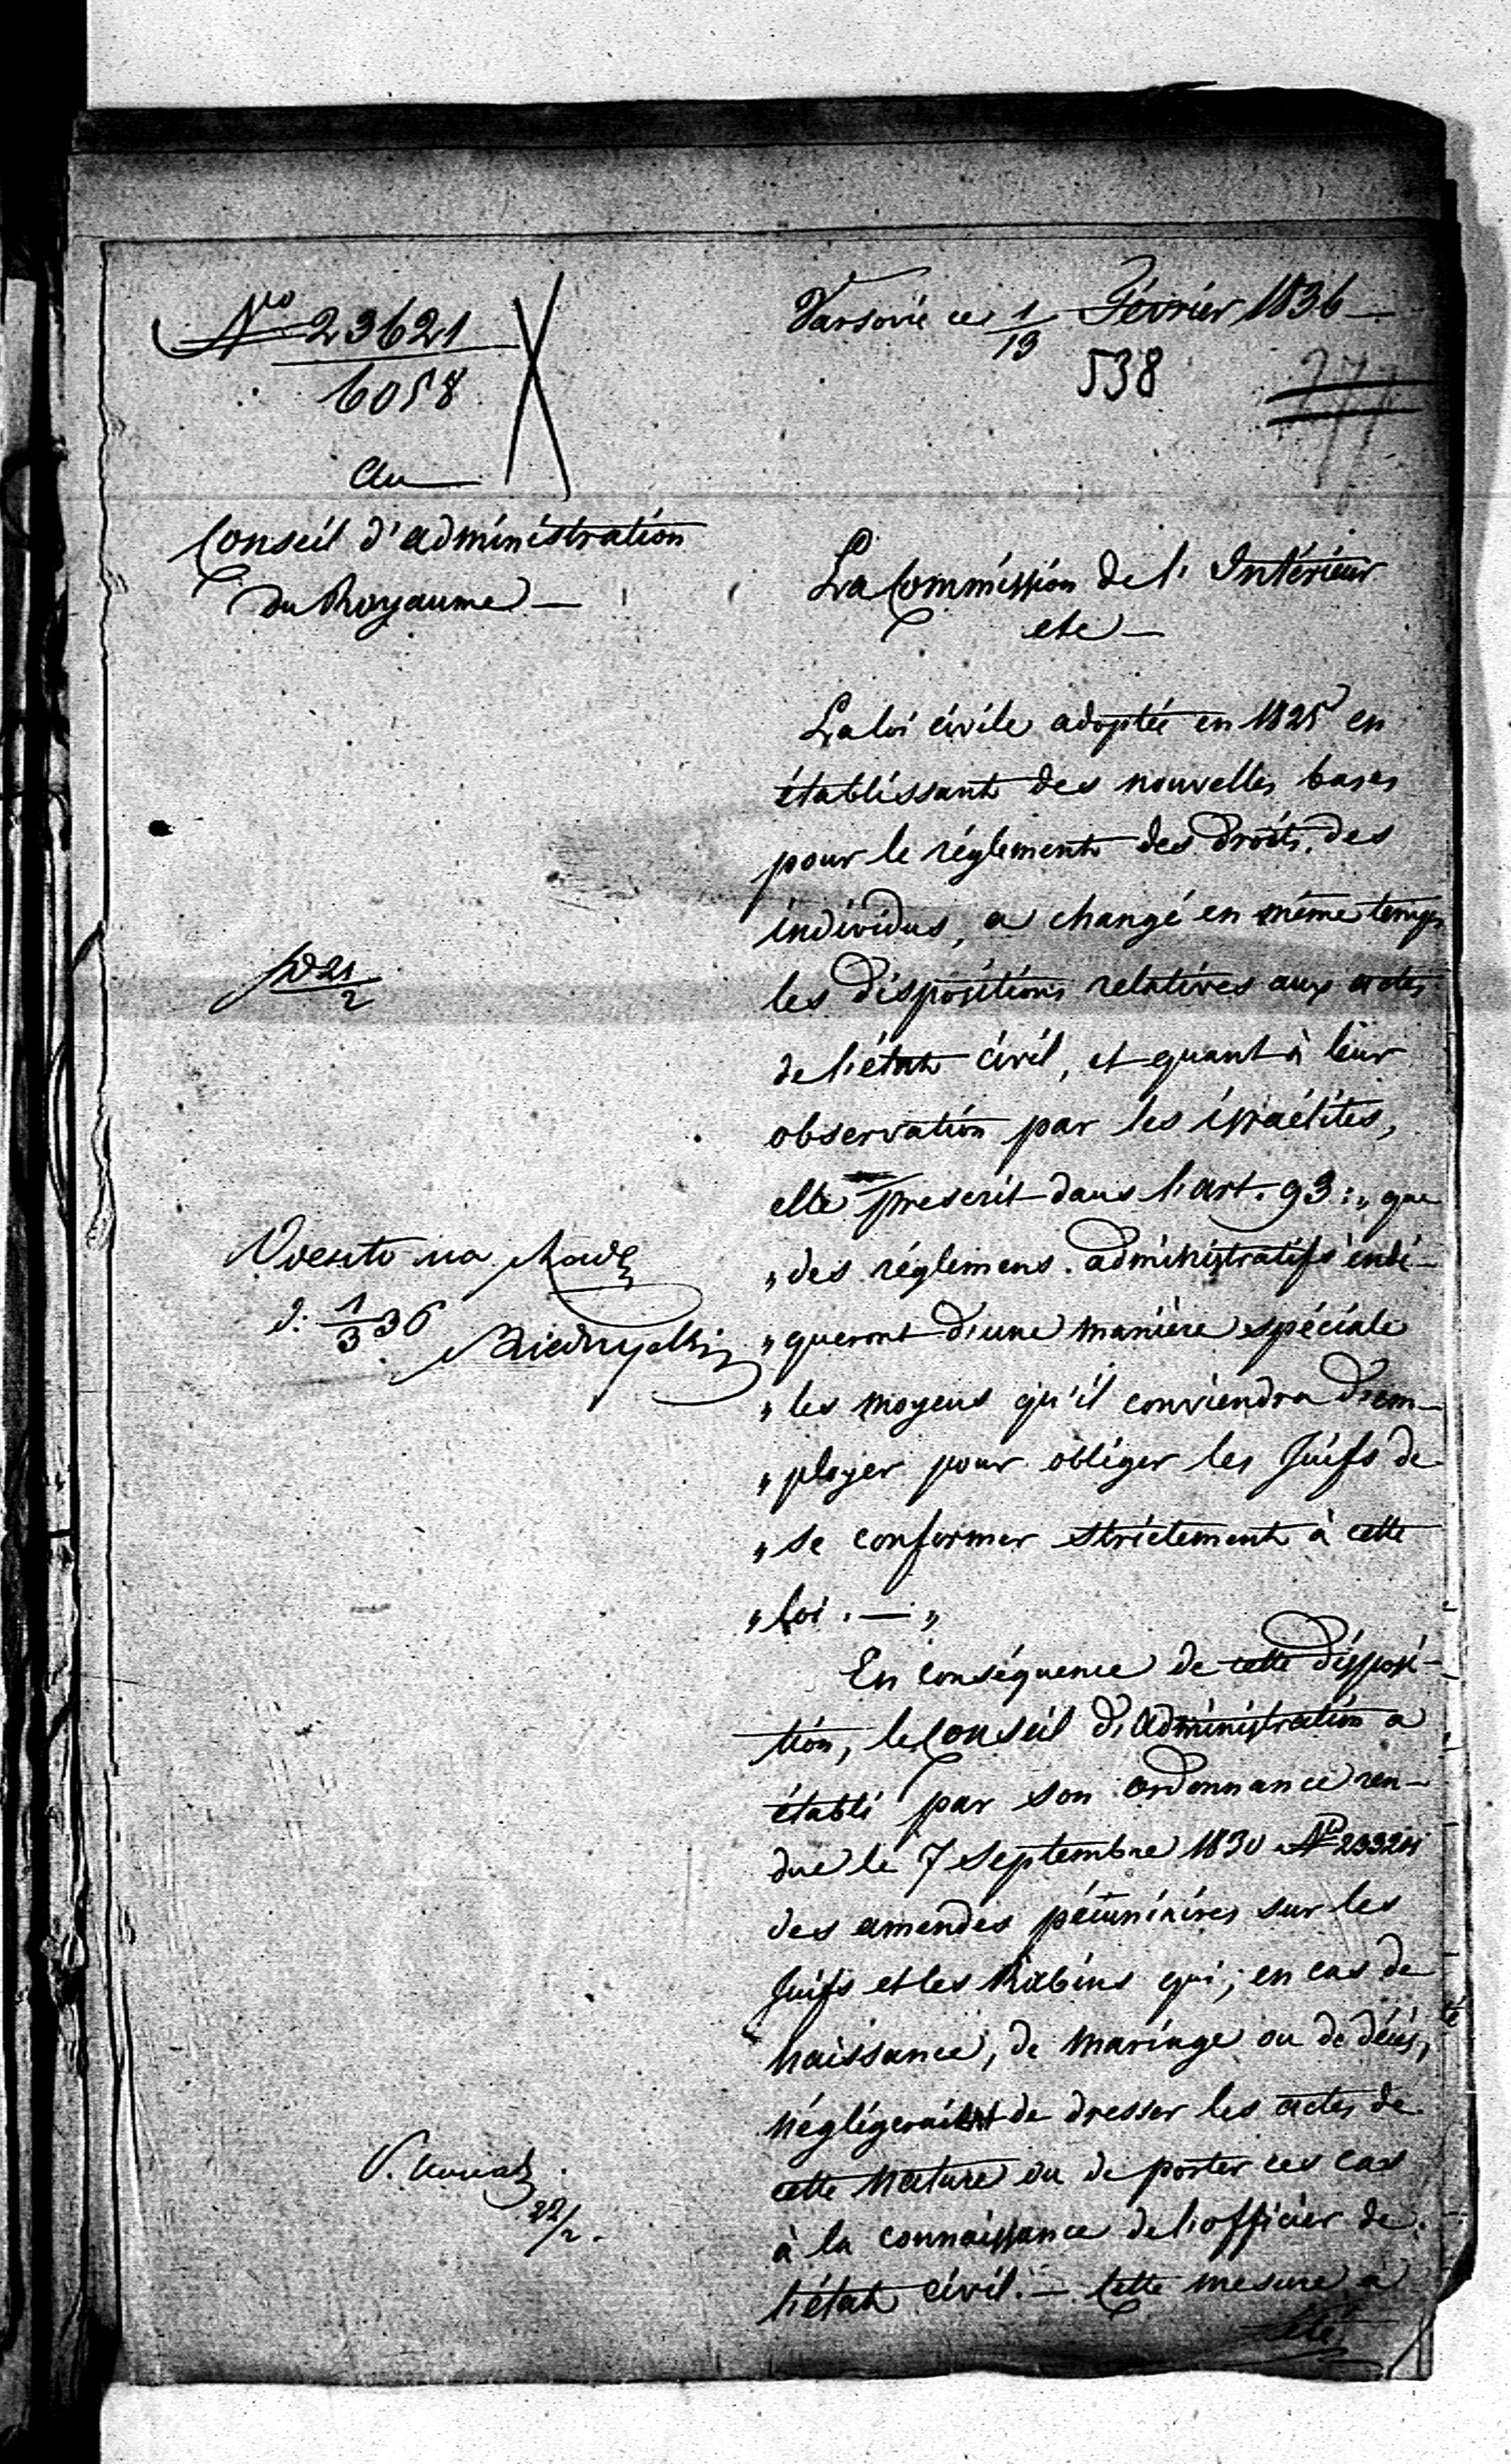 No 23621
6058
Au
Conseil d'administration
du Royaume —
Varsovie ce 1/13 Février 1836 —
538
La Commission de l'Intérieur
etc —
La loi civile adoptée en 1825 en
établissant des nouvelles bases
pour le réglement des droits des
individus, a changé en même temps
les dispositions relatives aux actes
de l'état civil, et quant à leur
observation par les israélites,
elle prescrit dans l'art. 93: „ que
„ des réglimens administratifs indi-
„ queront d'une manière spéciale
„ les moyens qu'il conviendra d'em-
„ ployer pour obliger les Juifs de
„ se conformer strictement à cette
„ loi. — „
En conséquence de cette disposi-
tion, le Conseil d'administration a
établi par son ordonnance ren-
due le 7 Septembre 1830 No
des amendes pécuniaires sur les
Juifs et les Rabins qui, en cas de
naissance, de mariage ou de décès,
négligeraient de dresser les actes de
cette nature ou de porter ces cas
à la connaissance de l'officier de
l'état civil. — Cette mesure a
été
21/2
na
d. 1/3 36
22/2.